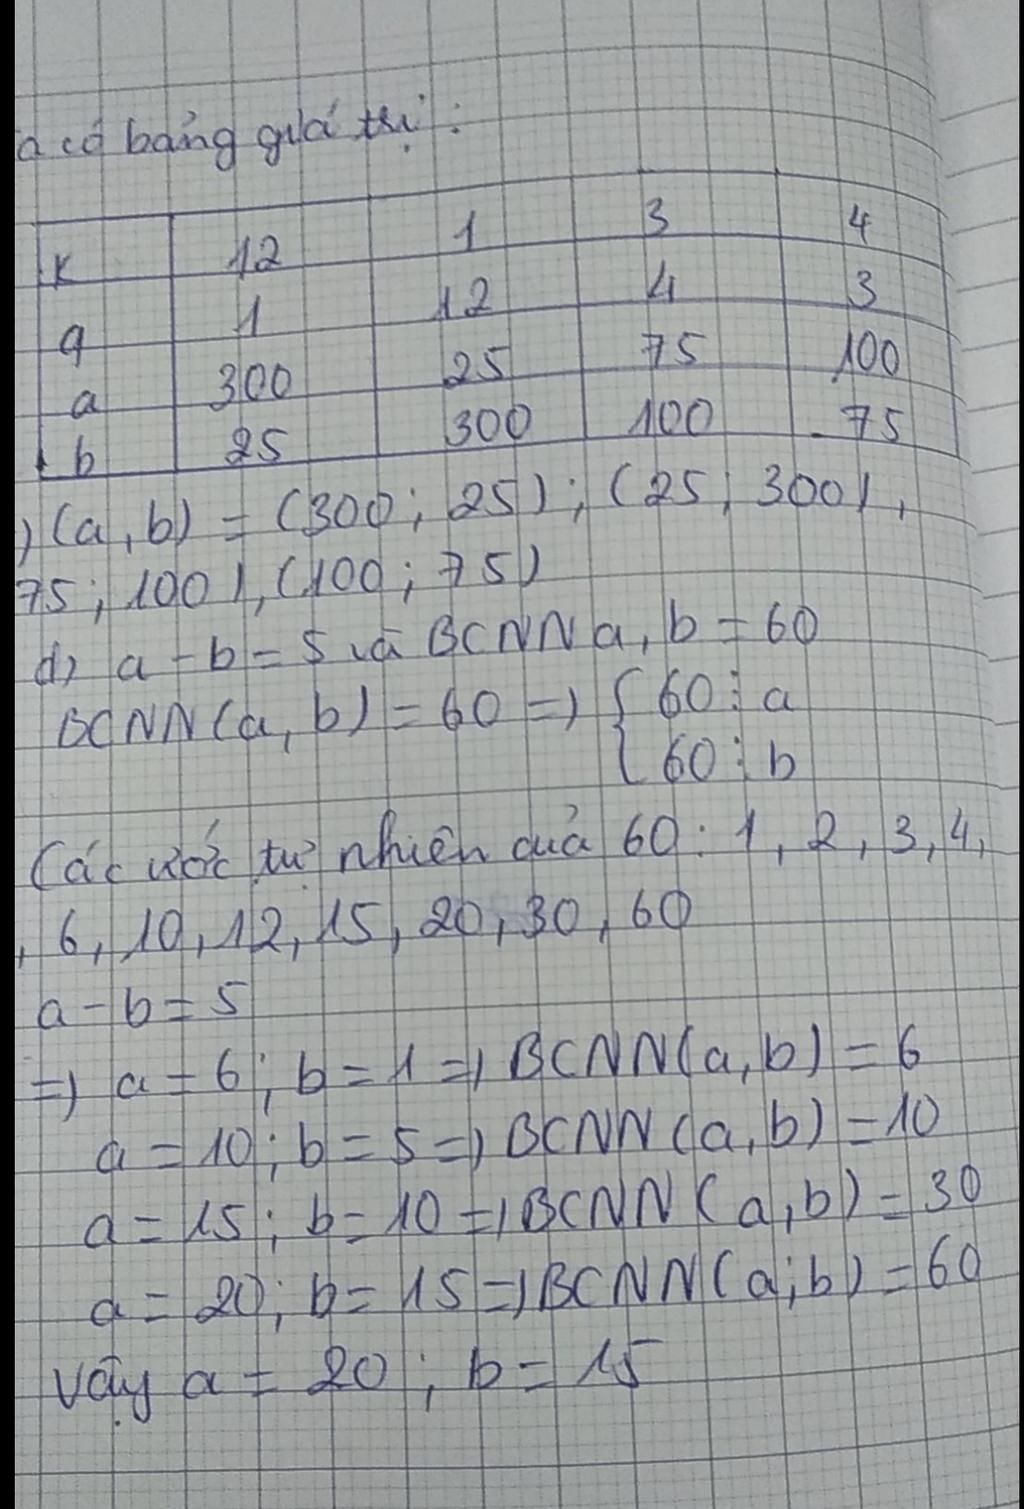 a có bảng giá trị:
K 12 1 3 4
q 1 12 4 3
a 300 25 75 100
b 25 300 100 75
) (a, b) = (300; 25); (25; 300),
75; 100), (100; 75)
d) a - b = 5 và BCNN a, b = 60
BCNN(a, b) = 60 => { 60 ⋮ a
{ 60 ⋮ b
Các ước tự nhiên quả 60: 1, 2, 3, 4,
, 6, 10, 12, 15, 20, 30, 60
a - b = 5
=> a = 6; b = 1 => BCNN(a, b) = 6
a = 10; b = 5 => BCNN(a, b) = 10
a = 15; b = 10 => BCNN(a, b) = 30
a = 20; b = 15 => BCNN(a; b) = 60
Vậy a = 20; b = 15